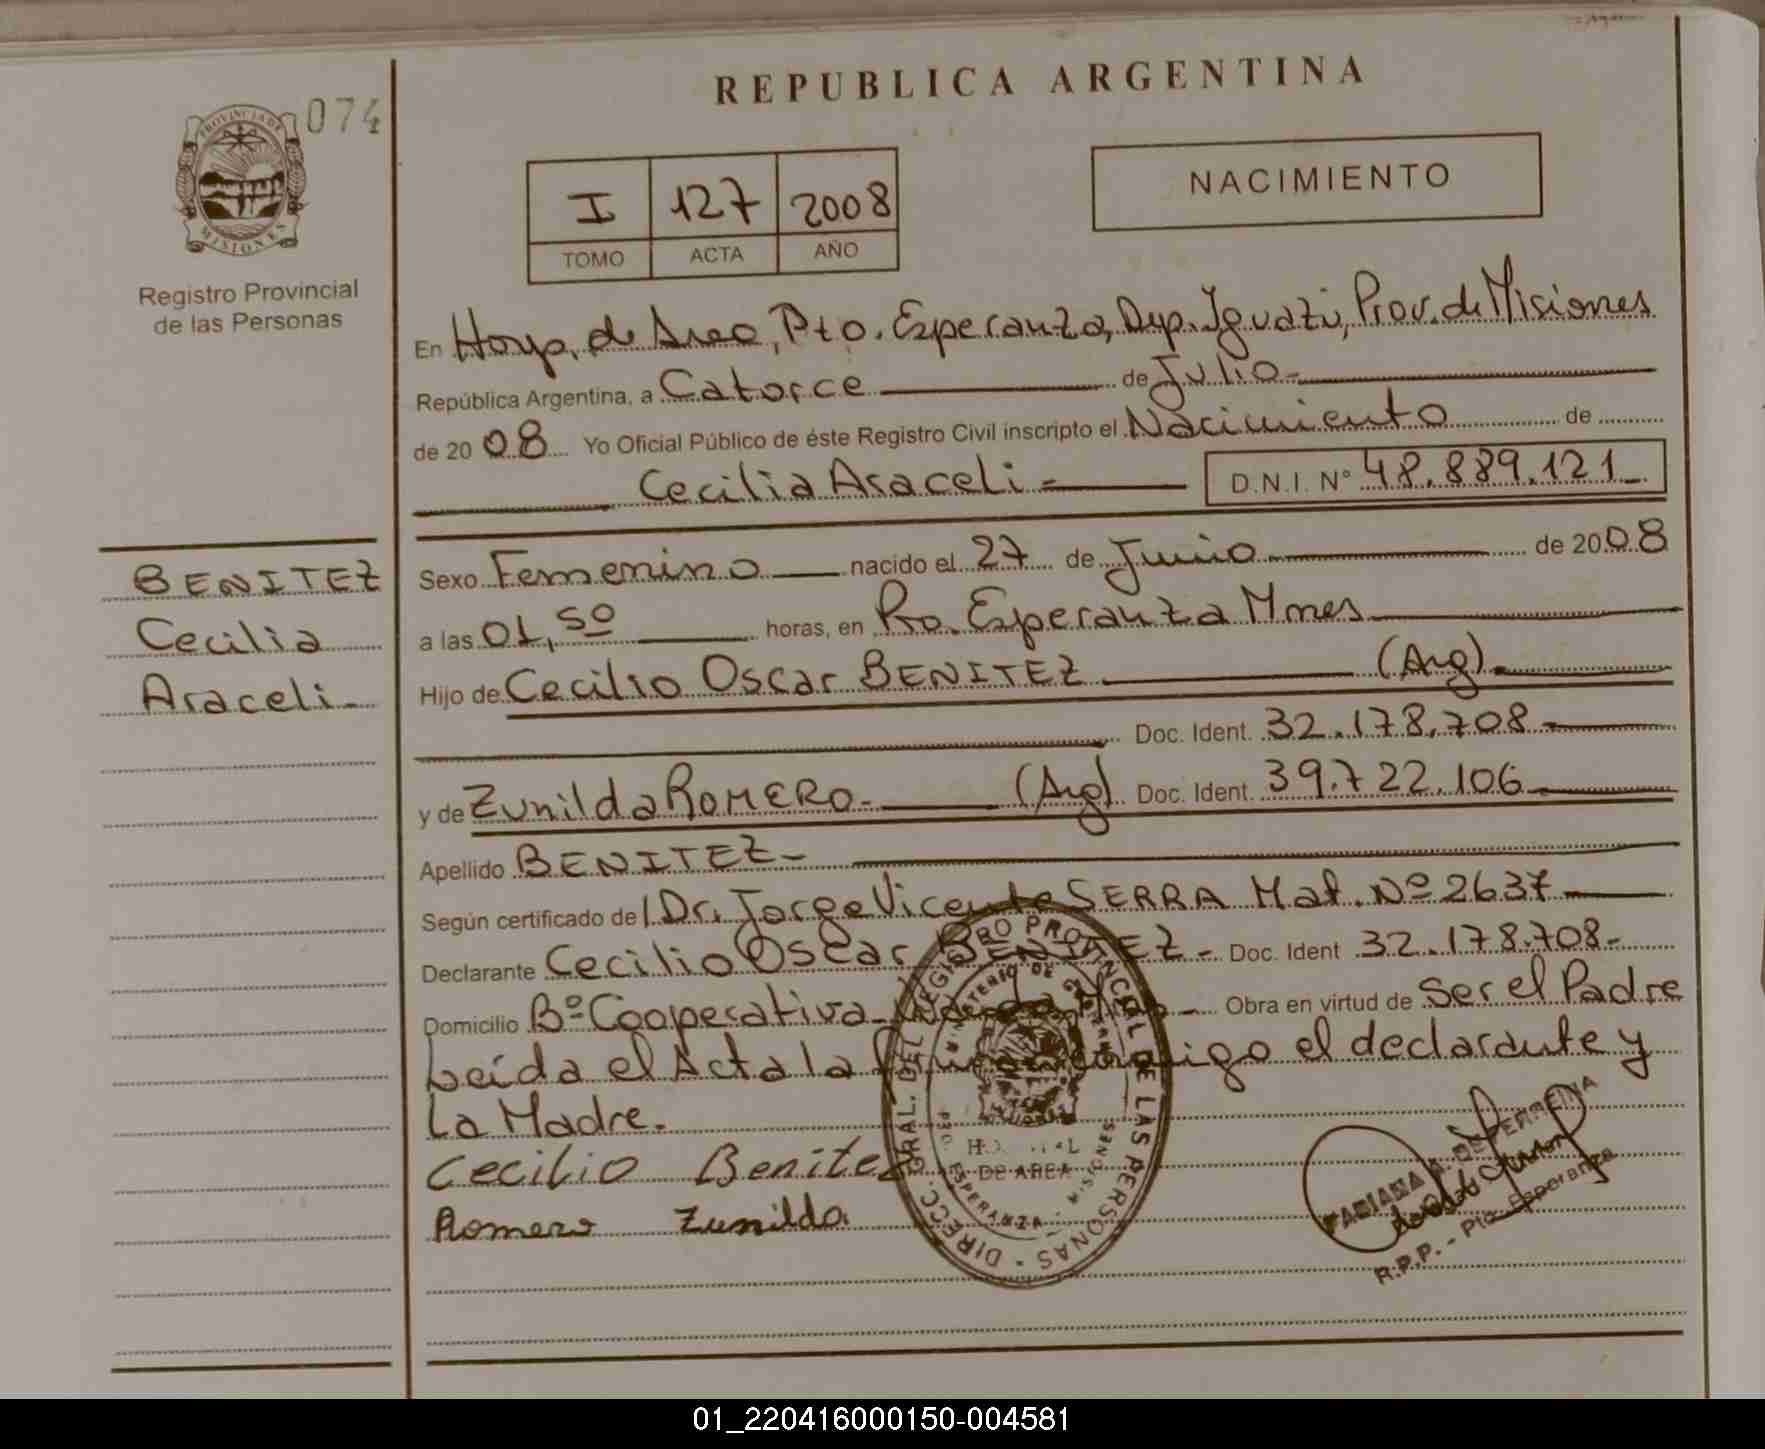 REPUBLICA ARGENTINA
074
PROVINCIA DE
MISIONES
Registro Provincial
de las Personas
I 127 2008
TOMO ACTA AÑO
NACIMIENTO
En Hosp. de Area, Pto. Esperanza, Dep. Iguazú, Prov. de Misiones
República Argentina, a Catorce de Julio
de 2008 Yo Oficial Público de éste Registro Civil inscripto el Nacimiento de
Cecilia Araceli D.N.I. N° 48.889.121
BENITEZ
Cecilia
Araceli
Sexo Femenino nacido el 27 de Junio de 2008
a las 01,50 horas, en Pto. Esperanza Mnes
Hijo de Cecilio Oscar BENITEZ (Arg).
Doc. Ident. 32.178.708
y de Zunilda ROMERO (Arg) Doc. Ident. 39.722.106
Apellido BENITEZ
Según certificado de Dr. Jorge Vicente SERRA Mat. Nº 2637
Declarante Cecilio Oscar BENITEZ Doc. Ident 32.178.708
Domicilio Bº Cooperativa Obra en virtud de Ser el Padre
Leída el Acta la conmigo el declarante y
La Madre.
Cecilio Benitez
Romero Zunilda
DIRECC. GRAL. DEL REGISTRO PROVINCIAL DE LAS PERSONAS
MINISTERIO DE GOBIERNO
DE AREA
ESPERANZA - MISIONES
R.P.P. - Pto. Esperanza
01_220416000150-004581